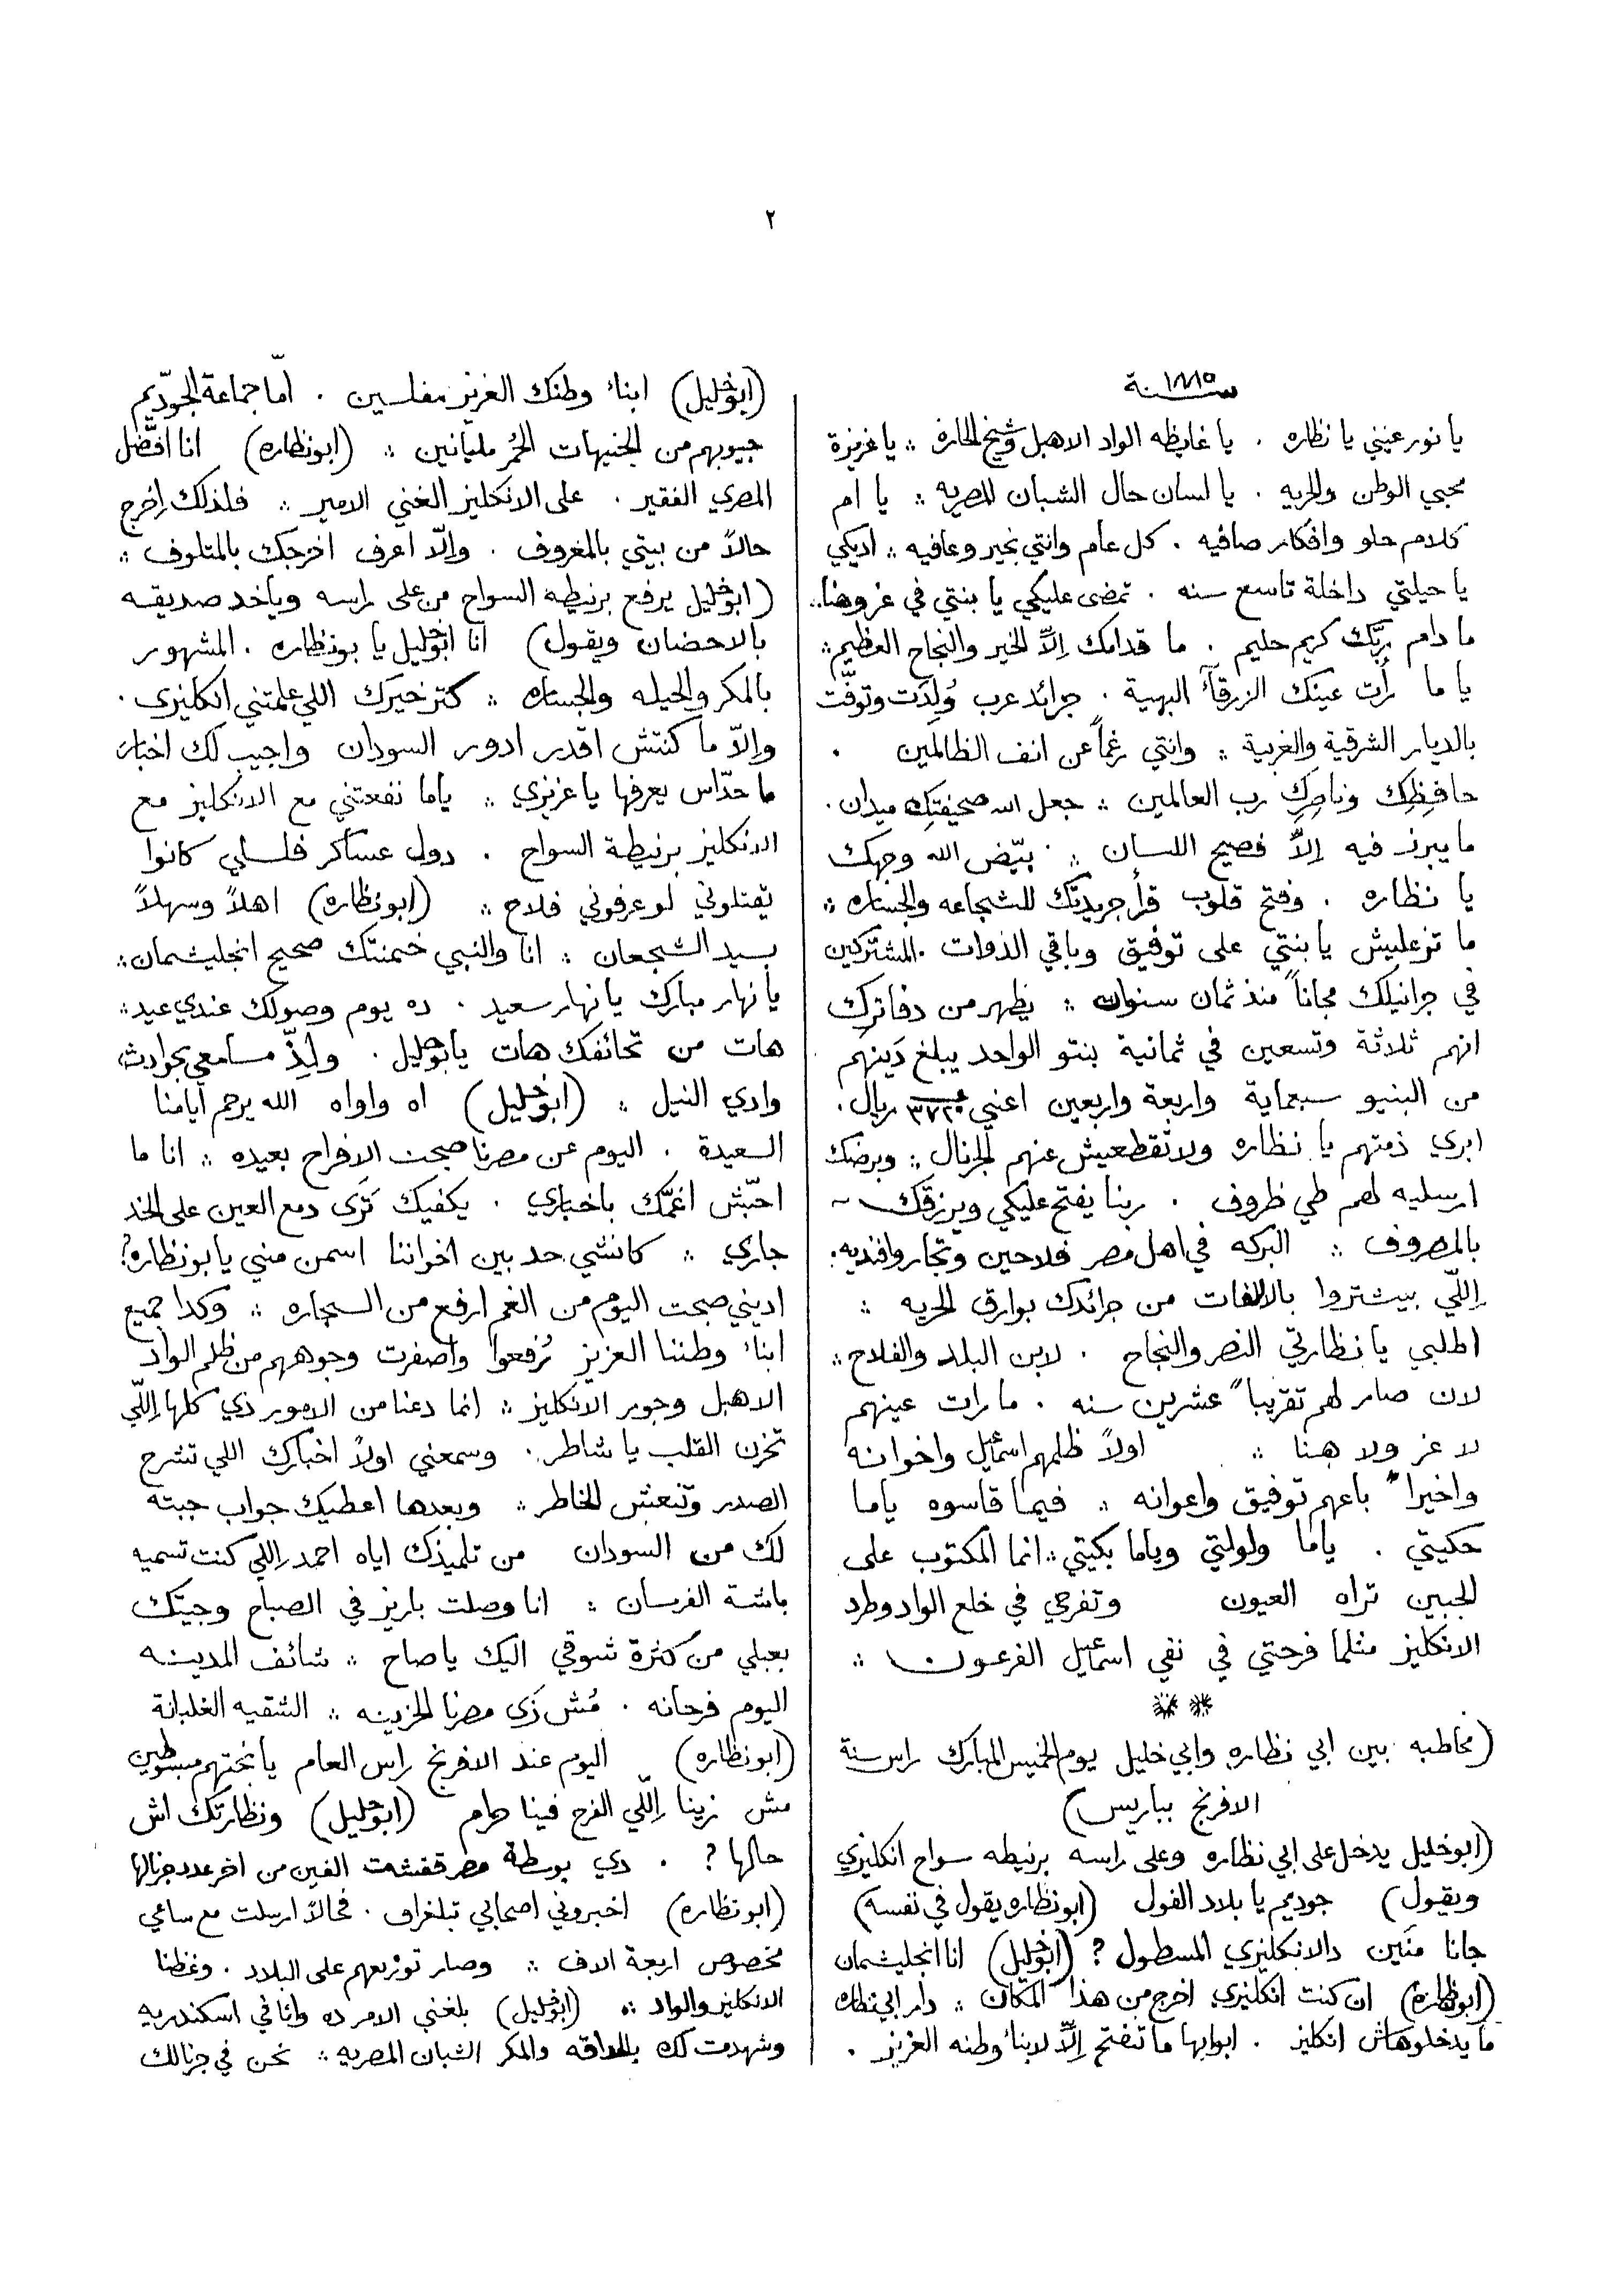 ٢
سنة ١٨٨٥
يا نور عيني يا نظاره . يا غايظه الواد الاهبل وشيخ الحارة ∴ يا عزيزة
محبي الوطن والحريه . يا لسان حال الشبان المصريه ∴ يا ام
كلام حلو وافكار صافيه . كل عام وانتي بخير وعافيه ∴ اديكي
يا حيلتي داخلة تاسع سنه . تمضى عليكي يا بنتي في عز وهنا ∴
ما دام ربّك كريم حليم . ما قدامك اِلاّ الخير والنجاح العظيم ∴
يا ما رأت عينك الزرقآء البهية . جرائد عرب وُلِدَت وتوفّت
بالديار الشرقية والغربية ∴ وانتي رغماً عن انف الظالمين .
حافِظِك وناصرِك رب العالمين ∴ جعل الله صحيفتِك ميدان .
ما يبرز فيه اِلاّ فصيح اللسان ∴ بيّض الله وجهك
يا نظاره . وفتح قلوب قرأ جريدتك للشجاعه والجساره ∴
ما تزعليش يا بنتي على توفيق وباقي الذوات . المشتركين
في جرانيلك مجاناً منذ ثمان سنوات ∴ يظهر من دفاترك
انهم ثلاثة وتسعين في ثمانية بنتو الواحد يبلغ دَينهم
من البنيو سبعماية واربعة واربعين اعني ٣٧٢٠ ريال .
ابري ذمتهم يا نظاره ولا تقطعيش عنهم الجرنال ∴ وبرضك
ارسليه لهم طي ظروف . ربنا يفتح عليكي ويرزقك ~
بالمصروف ∴ البركه في اهل مصر فلاحين وتجار وافنديه .
اِللّي بيشتروا بالالفات من جرائدك بوارق الحريه ∴
اطلبي يا نظارتي النصر والنجاح . لابن البلد والفلاح ∴
لان صار لهم تقريباً عشرين سنه . ما رات عينهم
لا عز ولا هنا ∴ اولاً ظلمهم اسمعيل واخوانه
واخيراً باعهم توفيق واعوانه ∴ فيما قاسوه ياما
حكيتي . ياما ولولتي وياما بكيتي ∴ انما المكتوب على
الجبين تراه العيون وتفرحي في خلع الواد وطرد
الانكليز مثلما فرحتي في نفي اسمعيل الفرعون ∴
**
(مخاطبه بين ابي نظاره وابي خليل يوم الخميس المبارك راس سنة
الافرنج بباريس)
(ابو خليل يدخل على ابي نظاره وعلى راسه برنيطه سواح انكليزي
ويقول) جوديم يا بلاد الفول (ابو نظاره يقول في نفسه)
جانا منَين دالانكليزي المسطول ? (ابو خليل) انا انجليشمان
(ابو نظاره) ان كنت انكليزي اخرج من هذا المكان ∴ دار ابي نظاره
ما يدخلوهاش انكليز . ابوابها ما تنفتح اِلاّ لابناء وطنه العزيز .
(ابو خليل) ابناء وطنك العزيز مفلسين . امّا جماعة الجوّديم
جيوبهم من الجنيهات الحُمر مليانين ∴ (ابو نظاره) انا افضّل
المصري الفقير . على الانكليز الغني الامير ∴ فلذلك اخرج
حالاً من بيتي بالمعروف . والّا اعرف اخرجك بالمتلوف ∴
(ابو خليل يرفع برنيطه السواح من على راسه وياخد صديقه
بالاحضان ويقول) انا ابو خليل يا بو نظاره . المشهور
بالمكر والحيله والجساره ∴ كتر خيرك اللي علمتني انكليزى .
واِلاّ ما كنتش اقدر ادور السودان واجيب لك اخبار
ما حدّاس يعرفها يا عزيزي ∴ ياما نفعتني مع الانكليز مع
الانكليز برنيطة السواح . دول عساكر فلسلي كانوا
يقتلوني لو عرفوني فلاح ∴ (ابو نظاره) اهلاً وسهلاً
بسيد الشجعان ∴ انا والنبي خمنتك صحيح انجليشمان ∴
يا نهار مبارك يا نهار سعيد . ده يوم وصولك عندي عيد ∴
هات من تحائفك هات يا بو خليل . ولذّ مسامعي بحوادث
وادي النيل ∴ (ابو خليل) اه واواه الله يرحم ايامنا
السعيدة . اليوم عن مصرنا صبحت الافراح بعيده ∴ انا ما
احبّش اغمّك باخباري . يكفيك تَرَى دمع العين على الخد
جاري ∴ كانشي حد بين اخواننا اسمن مني يا بو نظاره ?
اديني صبحت اليوم من الغم ارفع من السجاره ∴ وكدا جميع
ابناء وطننا العزيز رُفعوا واصفرت وجوههم من ظلم الواد
الاهبل وجور الانكليز ∴ انما دعنا من الامور دي كلها اِللّي
تحزن القلب يا شاطر . وسمعني اولاً اخبارك اللي تشرح
الصدر وتنعش الخاطر ∴ وبعدها اعطيك جواب جبته
لك من السودان من تلميذك اياه احمد اِللي كنت تسميه
باشة الفرسان ∴ انا وصلت باريز في الصباح وجيتك
بعبلي من كثرة شوقي اليك يا صاح ∴ شائف المدينه
اليوم فرحانه . مُش زَي مصرنا الحزينه ∴ الشقيه الغلبانة
(ابو نظاره) اليوم عند الافرنج راس العام يا بختهم مبسوطين
مش زينا اِللّي الفرح فينا حرام (ابو خليل) ونظارتك اش
حالها ? . دي بوسطة مصر قفشت الفين من اخر عدد جرنالها
(ابو نظاره) اخبروني اصحابي تبلغراف . فحالاً ارسلت مع ساعي
مخصوص اربعة الاف ∴ وصار توزيعهم على البلاد . وغظنا
الانكليز والواد ∴ (ابو خليل) بلغني الامر ده وانا في اسكندريه
وشهدت لك بالحداقه والمكر الشبان المصريه ∴ نحن في جرنالك